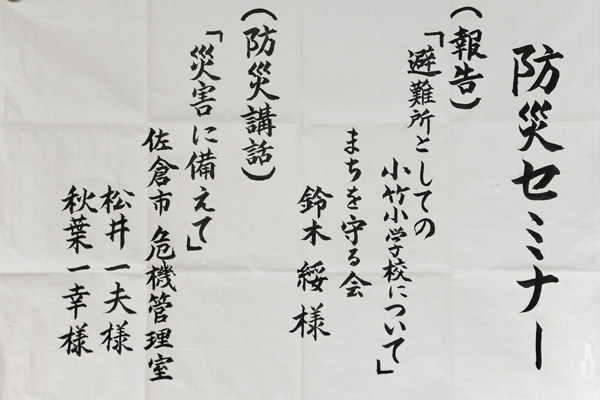 防災セミナー
(報告)
「避難所としての
小竹小学校について」
まちを守る会
鈴木 綏 様
(防災講話)
「災害に備えて」
佐倉市 危機管理室
松井一夫様
秋葉一幸様